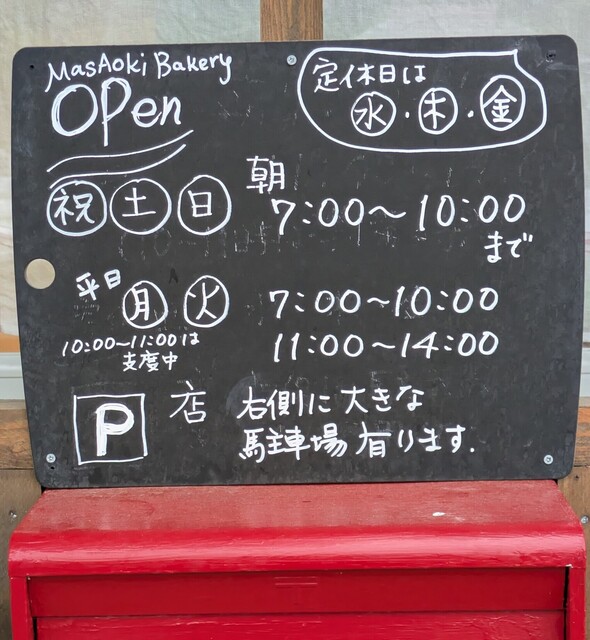 MasAoki Bakery
Open
定休日は
水・木・金
祝 土 日
朝
7:00～10:00
まで
平日
月 火
7:00～10:00
10:00～11:00は
支度中
11:00～14:00
P
店 右側に大きな
駐車場有ります.